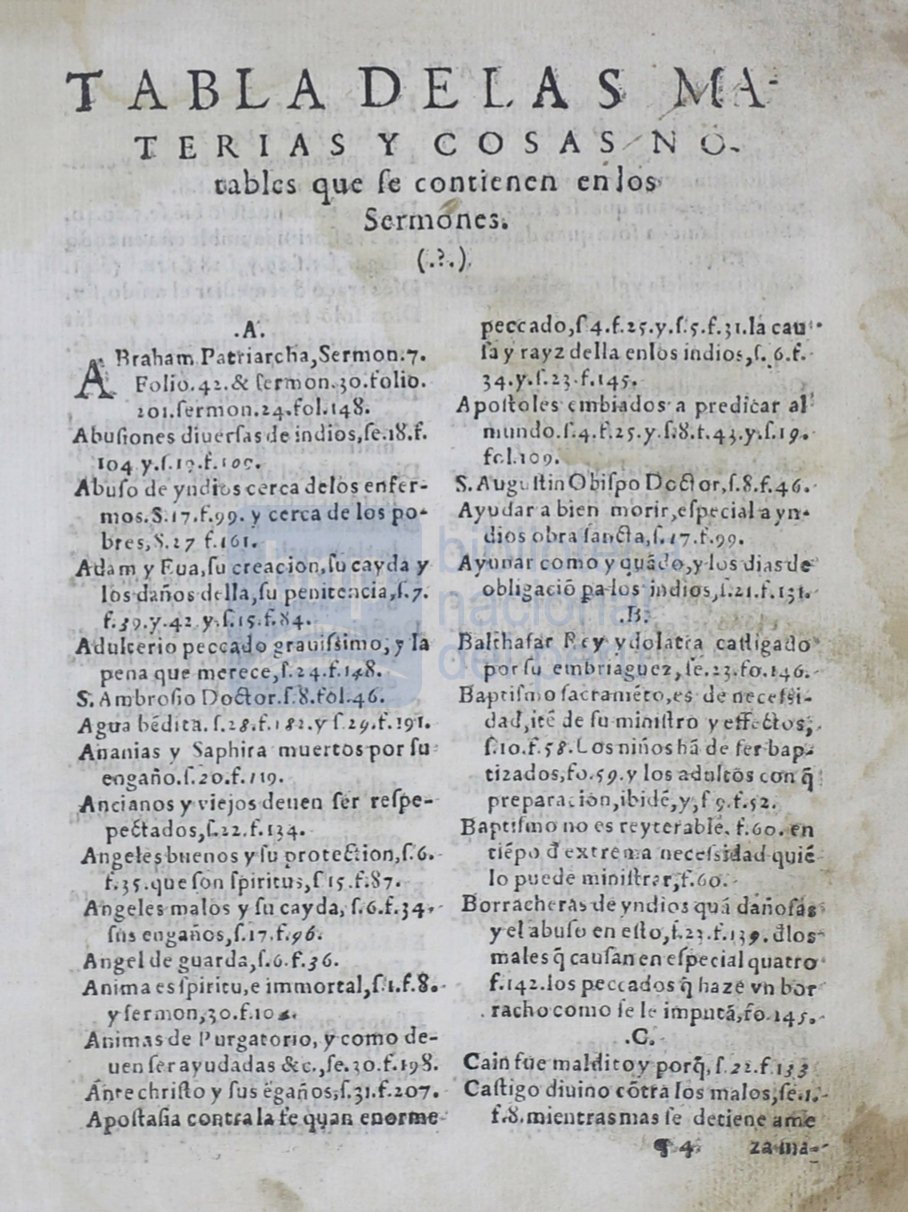 TABLA DE LAS MA-
TERIAS Y COSAS NO-
tables que ſe contienen en los
Sermones.
(.?.)
.A.
ABraham Patriarcha, Sermon.7.
Folio.42.& ſermon.30.folio.
201.ſermon.24.fol.148.
Abuſiones diuerſas de indios, ſe.18.f.
104 y.ſ.19.f.109.
Abuſo de yndios cerca delos enfer-
mos.S.17.f.99. y cerca de los po-
bres, S.27 f.161.
Adam y Eua, ſu creacion, ſu cayda y
los daños della, ſu penitencia, ſ.7.
f.39.y.42 y.ſ.15.f.84.
Adulterio peccado grauiſsimo, y la
pena que merece, ſ.24.f.148.
S. Ambroſio Doctor.ſ.8.fol.46.
Agua bēdita.ſ.28.f.182.y ſ.29.f.191.
Ananias y Saphira muertos por ſu
engaño.ſ.20.f.119.
Ancianos y viejos deuen ſer reſpe-
pectados, ſ.22.f.134.
Angeles buenos y ſu protection, ſ.6.
f.35.que ſon ſpiritus, ſ 15.f.87.
Angeles malos y ſu cayda, ſ.6.f.34.
ſus engaños, ſ.17.f.96.
Angel de guarda, ſ.6.f.36.
Anima es ſpiritu, e immortal, ſ.1.f.8.
y ſermon, 30.f.
Animas de Purgatorio, y como de-
uen ſer ayudadas &c., ſe.30.f.198.
Antechriſto y ſus ēgaños, ſ.31.f.207.
Apoſtaſia contra la fe quan enorme
peccado, ſ 4.f.25.y.ſ.5.f.31.la cau
ſa y rayz della enlos indios, ſ. 6.f.
34.y.ſ.23.f.145.
Apoſtoles embiados a predicar al
mundo.ſ.4.f.25.y.ſ.8.f.43.y.ſ.19.
fol.109.
S. Auguſtin Obiſpo Doctor, ſ.8.f.46.
Ayudar a bien morir, eſpecial a yn-
dios obra ſancta, ſ.17.f.99.
Ayunar como y quādo, y los dias de
obligaciō pa los indios, ſ.21.f.131.
.B.
Balthaſar Rey ydolatra caſtigado
por ſu embriaguez, ſe.23.fo.146.
Baptiſmo ſacramēto, es de neceſsi-
dad, itē de ſu miniſtro y effectos,
ſ.10.f.58.Los niños hā de ſer bap-
tizados, fo.59.y los adultos con q̄
preparacion, ibidē, y, ſ 9.f.52.
Baptiſmo no es reyterable. f.60. en
tiēpo đ extrema neceſsidad quiē
lo puede miniſtrar, f.60.
Borracheras de yndios quā dañoſas
y el abuſo en eſto, ſ.23.f.139.đlos
males q̄ cauſan en eſpecial quatro
f.142.los peccados q̄ haze vn bor
racho como ſe le imputā, fo.145.
.C.
Cain fue maldito y porq̄, ſ.22.f.133
Caſtigo diuino cōtra los malos, ſe.1.
f.8.mientras mas ſe detiene ame
¶ 4. za ma-
biblioteca
nacional